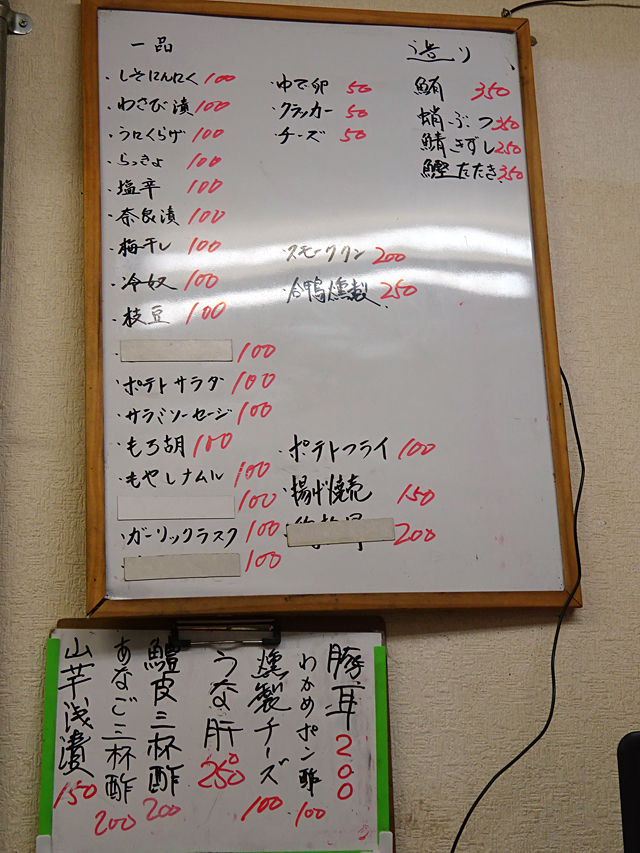 一品
・しそにんにく 100
・わさび漬 100
・うにくらげ 100
・らっきょ 100
・塩辛 100
・奈良漬 100
・梅干し 100
・冷奴 100
・枝豆 100
・ 100
・ポテトサラダ 100
・サラミソーセージ 100
・もろ胡 100
・もやしナムル 100
100
・ガーリックラスク 100
100
・ゆで卵 50
・クラッカー 50
・チーズ 50
・スモークタン 200
・合鴨燻製 250
・ポテトフライ 100
・揚げ焼売 150
200
造り
鮪 350
蛸ぶつ 350
鯖きずし 250
鰹たたき 350
豚耳 200
わかめポン酢 100
燻製チーズ 100
うな肝 250
鱧皮三杯酢 200
あなご三杯酢 200
山芋浅漬 150